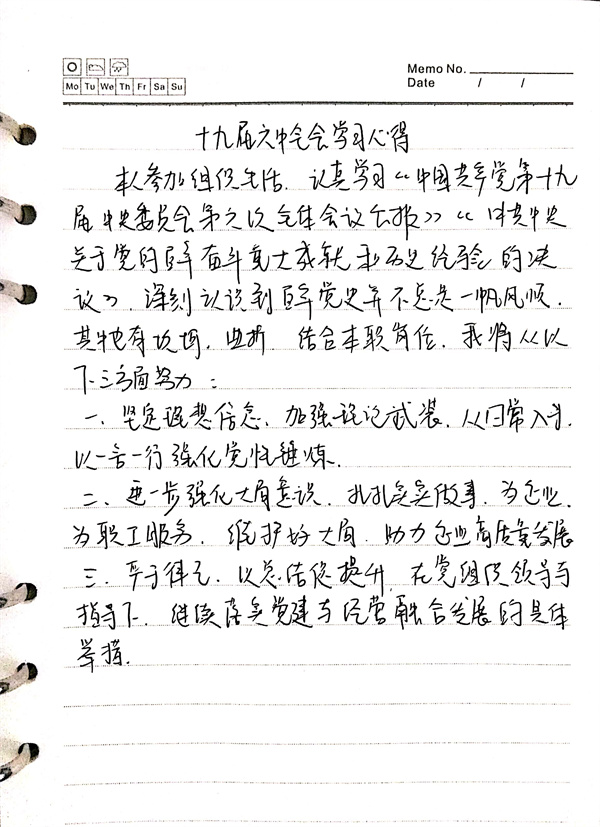 Memo No.
Mo Tu We Th Fr Sa Su
Date / /
十九届六中全会学习心得
本人参加组织生活、认真学习《中国共产党第十九
届中央委员会第六次全体会议公报》《中共中央
关于党的百年奋斗重大成就和历史经验的决
议》，深刻认识到百年党史并不总是一帆风顺，
其中也有坎坷，曲折，结合本职岗位，我将从以
下三方面努力：
一、坚定理想信念、加强理论武装，从日常入手，
以一言一行强化党性锤炼。
二、进一步强化大局意识，扎扎实实做事，为企业，
为职工服务，维护好大局，助力企业高质量发展
三、严于律己，以总结促提升，在党组织领导与
指导下，继续落实党建与经营融合发展的具体
举措。